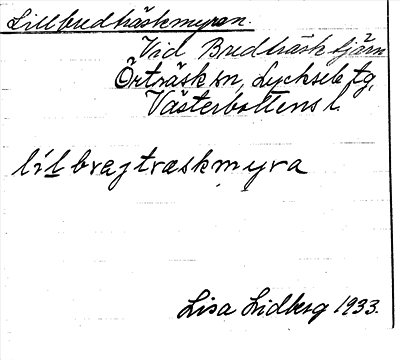 Lillbredträskmyran.
Vid Bredträsktjärn
Örträsk sn, Lycksele tg,
Västerbottens l.
lilbrajtraskmyra
Lisa Lidberg 1933.